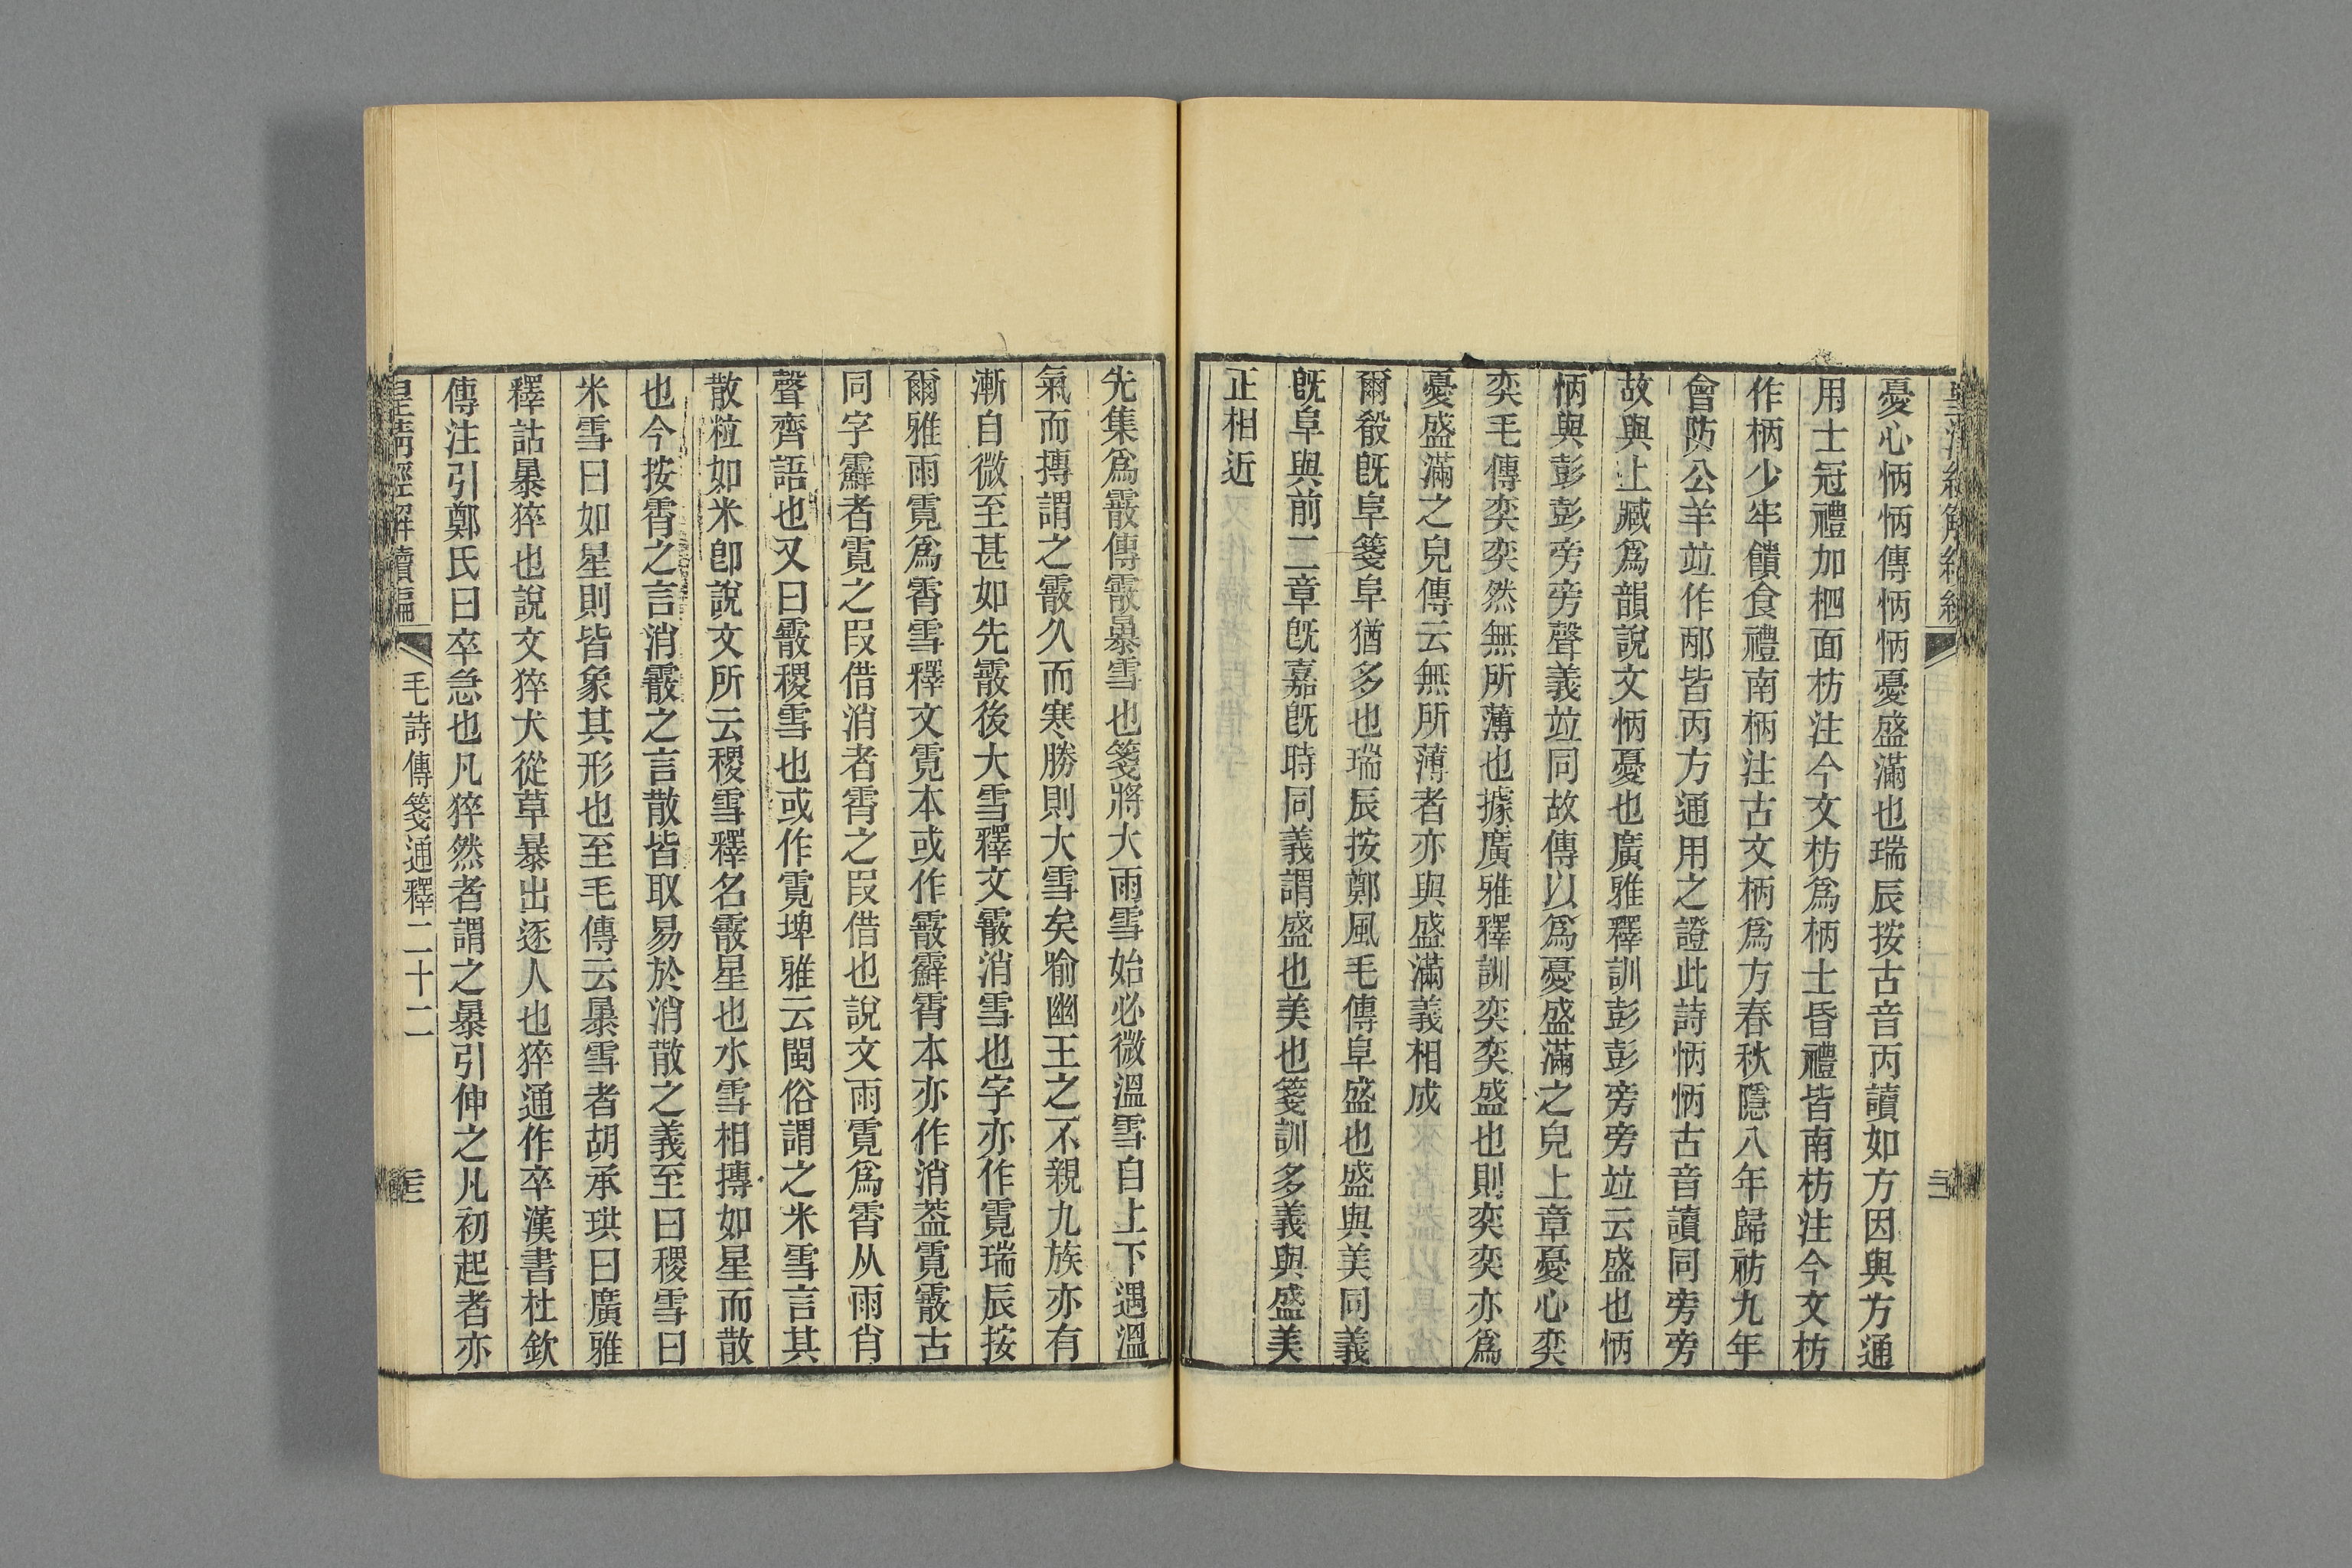 憂心怲怲傳怲怲憂盛滿也瑞辰按古音丙讀如方因與方通
用士冠禮加柶面枋注今文枋爲柄士昏禮皆南枋注今文枋
作柄少牢饋食禮南柄注古文柄爲方春秋隱八年歸祊九年
會防公羊竝作邴皆丙方通用之證此詩怲怲古音讀同旁旁
故與上臧爲韻說文怲憂也廣雅釋訓彭彭旁旁竝云盛也怲
怲與彭彭旁旁聲義竝同故傳以爲憂盛滿之皃上章憂心奕
奕毛傳奕奕然無所薄也據廣雅釋訓奕奕盛也則奕奕亦爲
憂盛滿之皃傳云無所薄者亦與盛滿義相成
爾殽旣阜箋阜猶多也瑞辰按鄭風毛傳阜盛也盛與美同義
旣阜與前二章旣嘉旣時同義謂盛也美也箋訓多義與盛美
正相近
先集爲霰傳霰暴雪也箋將大雨雪始必微溫雪自上下遇溫
氣而摶謂之霰久而寒勝則大雪矣喻幽王之不親九族亦有
漸自微至甚如先霰後大雪釋文霰消雪也字亦作霓瑞辰按
爾雅雨霓爲霄雪釋文霓本或作霰霹霄本亦作消葢霓霰古
同字霹者霓之叚借消者霄之叚借也說文雨霓爲霄从雨肖
聲齊語也又曰霰稷雪也或作霓埤雅云閩俗謂之米雪言其
散粒如米卽說文所云稷雪釋名霰星也水雪相摶如星而散
也今按霄之言消霰之言散皆取易於消散之義至曰稷雪曰
米雪曰如星則皆象其形也至毛傳云暴雪者胡承珙曰廣雅
釋詁暴猝也說文猝犬從草暴出逐人也猝通作卒漢書杜欽
傳注引鄭氏曰卒急也凡猝然者謂之暴引伸之凡初起者亦
皇淸經解續編
毛詩傳箋通釋二十二